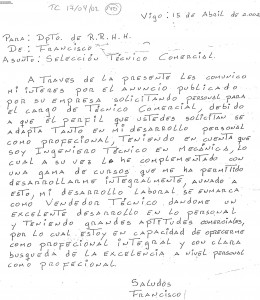 TC 17/04/02 (40)
Vigo: 15 de Abril de 2.002
Para: Dpto. de R.R.H.H.
De: Francisco
Asunto: Selección Técnico Comercial.
A traves de la presente les comunico
mi interes por el anuncio publicado
por su empresa solicitando personal para
el cargo de Técnico Comercial, debido
a que el perfil que ustedes solicitan se
adapta tanto en mi desarrollo personal
como profecional, teniendo en cuenta que
soy Ingeniero Técnico en Mecánica, lo
cual a su vez lo he complementado con
una gama de cursos que me ha permitido
desarrollarme integralmente, aunado a
esto, mi desarrollo laboral se enmarca
como Vendedor Técnico. dandome un
excelente desarrollo en lo personal
y teniendo grandes aptitudes comerciales,
por lo cual estoy en capacidad de ofrecerme
como profecional integral y con clara
busqueda de la excelencia a nivel personal
como profecional.
Saludos
Francisco